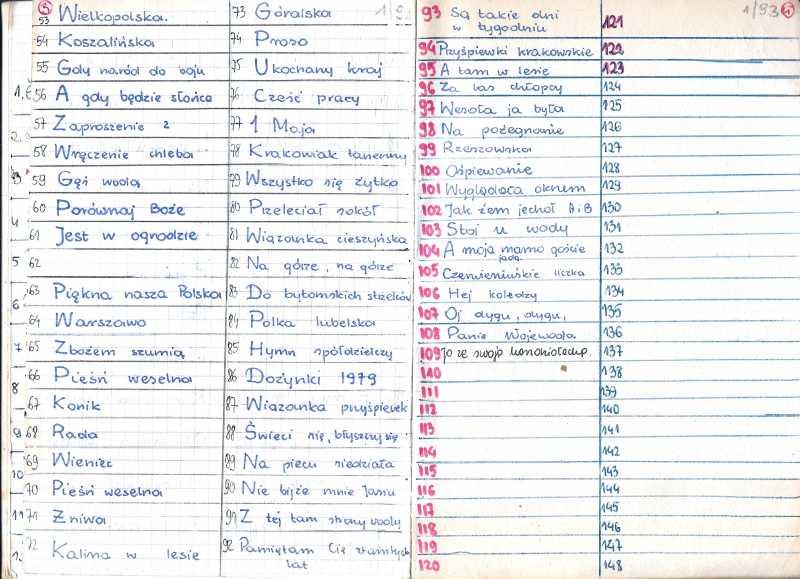 53 Wielkopolska.
54 Koszalińska
55 Gdy naród do boju
56 A gdy będzie słońce
57 Zaproszenie 2
58 Wręczenie chleba
59 Gęś woda
60 Porównaj Boże
61 Jest w ogrodzie
62
63 Piękna nasza Polska
64 Warszawo
65 Zbożem szumią
66 Pieśń weselna
67 Konik
68 Rada
69 Wieniec
70 Pieśń weselna
71 Żniwa
72 Kalina w lesie
73 Góralska
74 Proso
75 Ukochany kraj
76 Cześć pracy
77 1 Maja
78 Krakowiak taneczny
79 Wszystko się żytko
80 Przeleciał sokół
81 Wiązanka cieszyńska
82 Na górze, na górze
83 Do bytomskich strzelców
84 Polka lubelska
85 Hymn spółdzielczy
86 Dożynki 1979
87 Wiązanka przyśpiewek
88 Świeci się, błyszczy się
89 Na piecu siedziała
90 Nie bijże mnie Jasiu
91 Z tej tam strony wody
92 Pamiętam Cię z tamtych
lat
1/93
93 Są takie dni
w tygodniu
94 Przyśpiewki krakowskie
95 A tam w lesie
96 Za las chłopcy
97 Wesoła ja była
98 Na pożegnanie
99 Rzeszowska
100 Ośpiewanie
101 Wyglądała oknem
102 Jak żem jechoł A i B
103 Stoi u wody
104 A moja mamo goście
jadą
105 Czerwieniuśkie liczka
106 Hej koledzy
107 Oj dygu, dygu,
108 Panie Wojewoda
109 Jo ze swoją
110
111
112
113
114
115
116
117
118
119
120
121
122
123
124
125
126
127
128
129
130
131
132
133
134
135
136
137
138
139
140
141
142
143
144
145
146
147
148